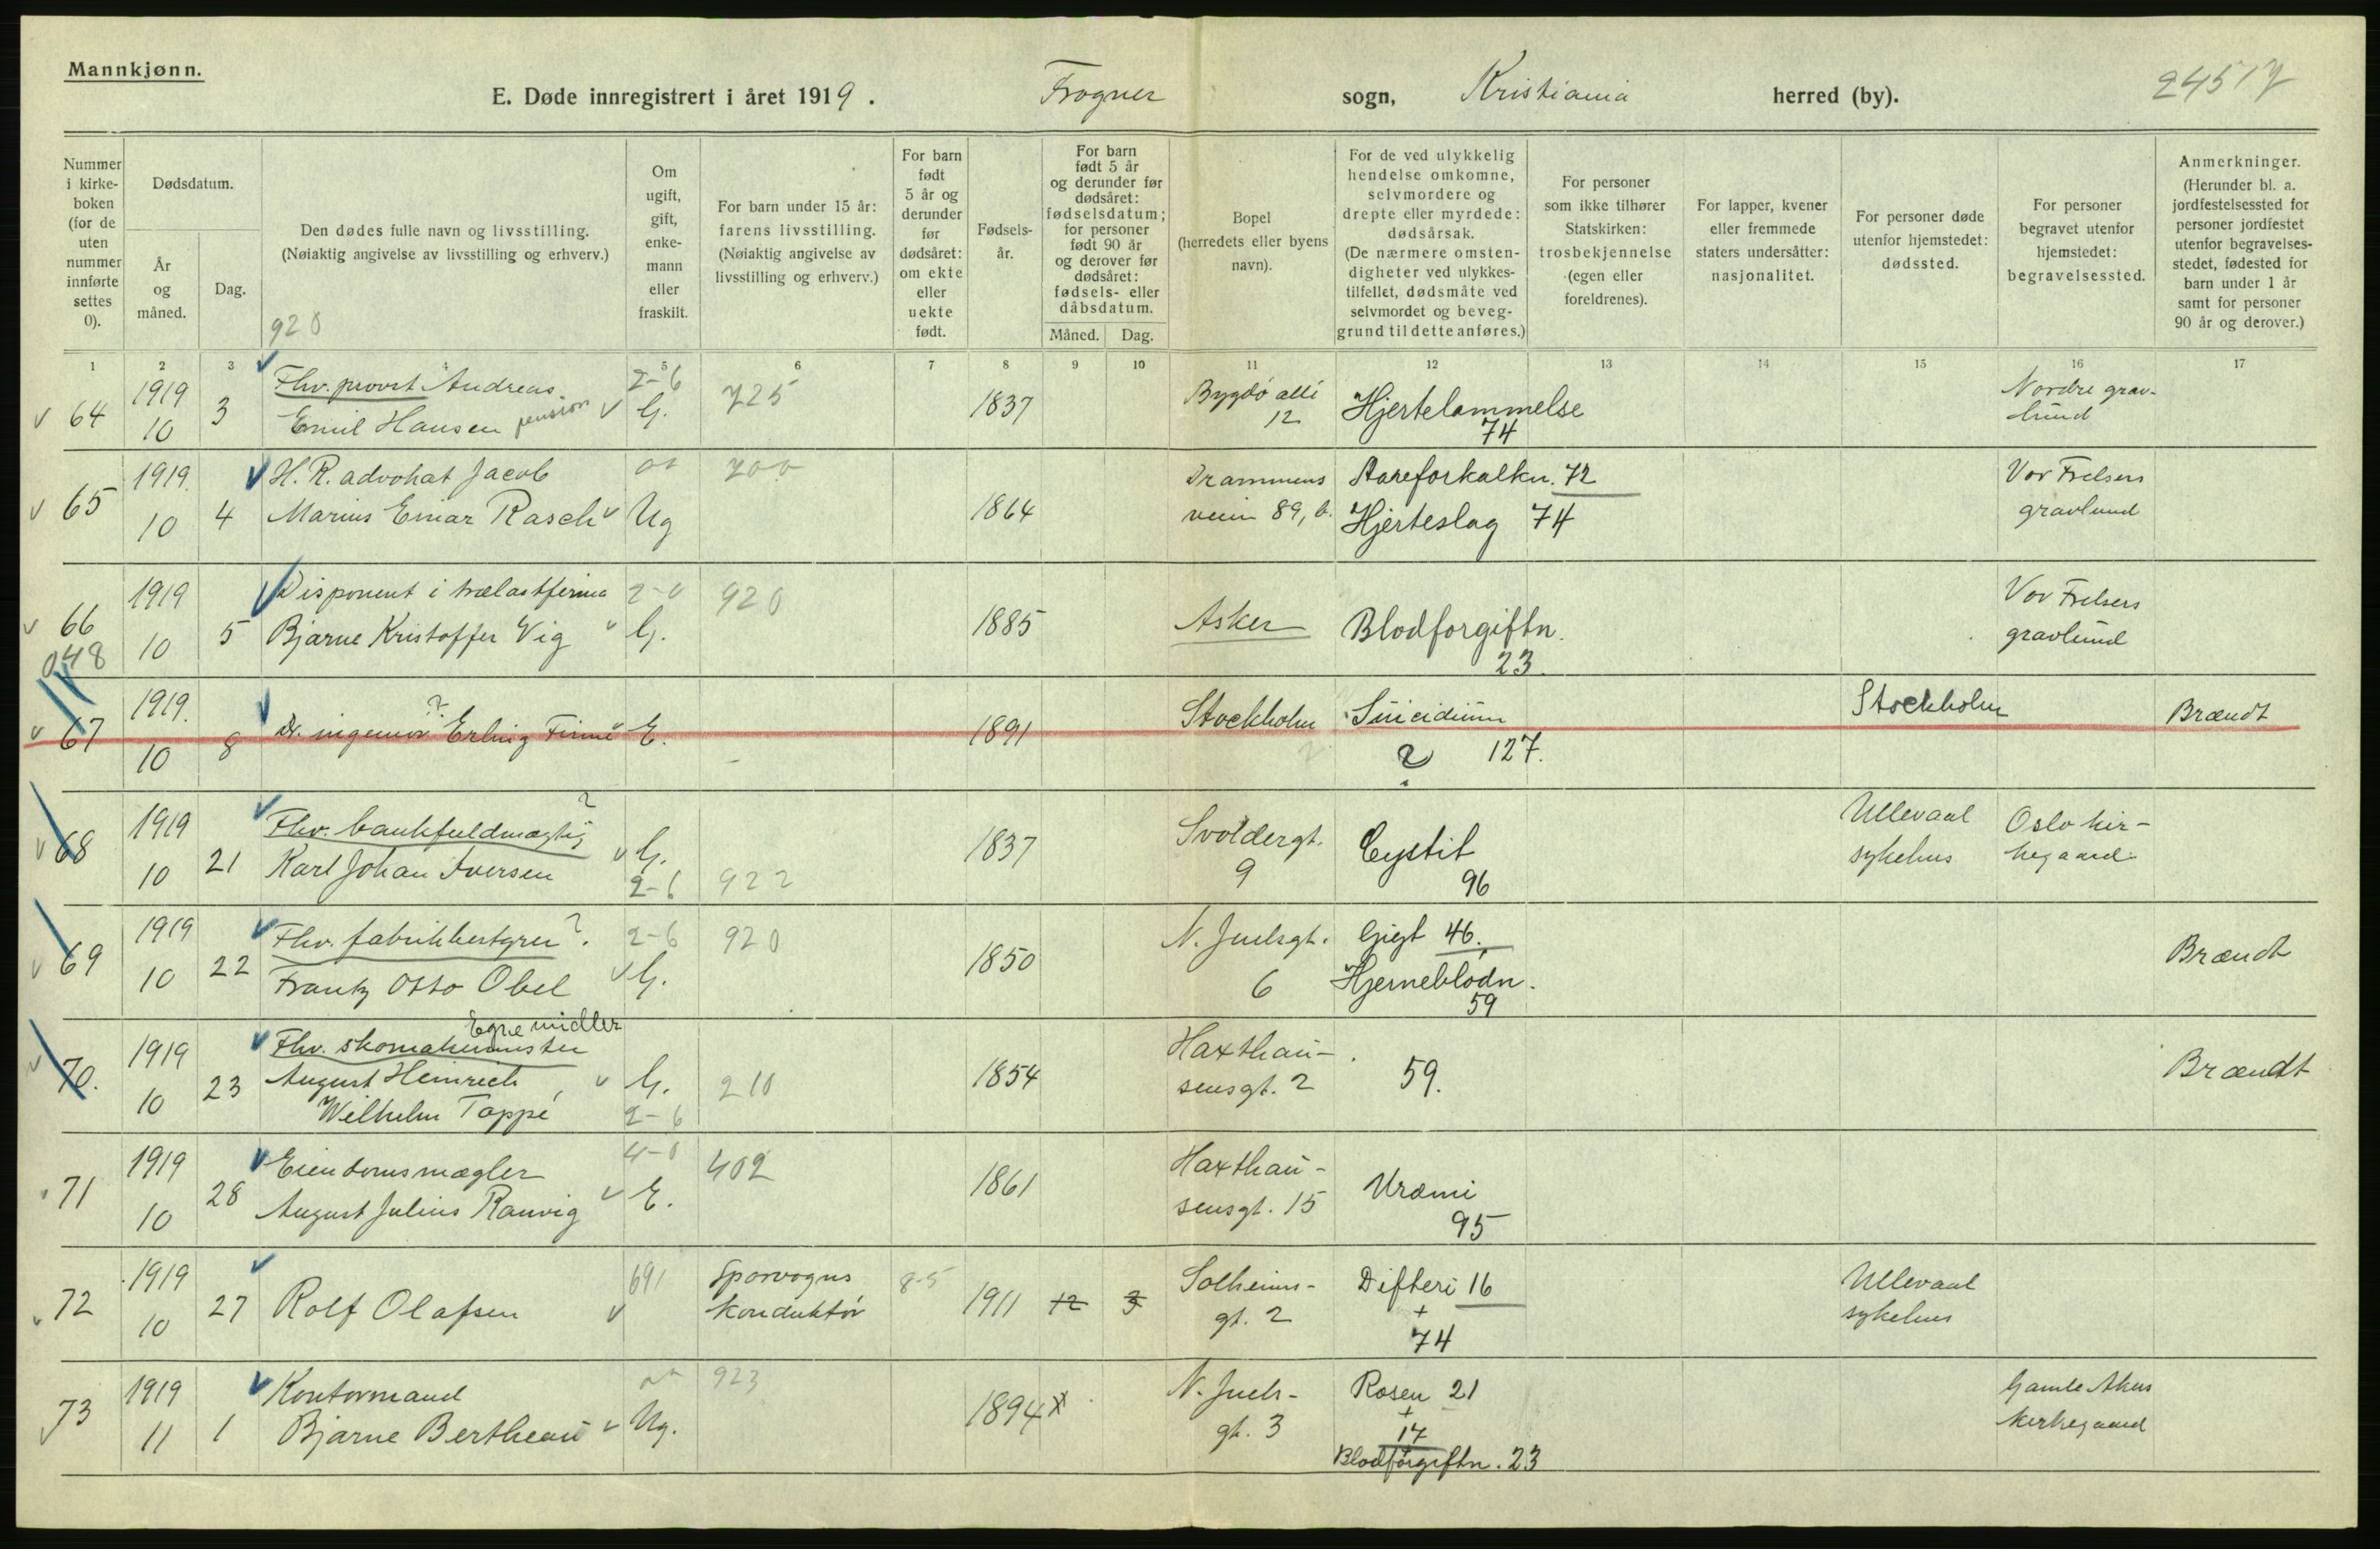 Mannkjønn.
E. Døde innregistrert i året 1919. Frogner sogn, Kristiania herred (by). 24517
Nummer i kirke-boken (for de uten nummer innførte settes 0).
Dødsdatum.
År og måned.
Dag.
Den dødes fulle navn og livsstilling.
(Nøiaktig angivelse av livsstilling og erhverv.)
920
Om ugift, gift, enke-mann eller fraskilt.
For barn under 15 år: farens livsstilling. (Nøiaktig angivelse av livsstilling og erhverv.)
For barn født 5 år og derunder før dødsåret: om ekte eller uekte født.
Fødsels-år.
For barn født 5 år og derunder før dødsåret: fødselsdatum; for personer født 90 år og derover før dødsåret: fødsels- eller dåbsdatum.
Måned. Dag.
Bopel (herredets eller byens navn).
For de ved ulykkelig hendelse omkomne, selvmordere og drepte eller myrdede: dødsårsak. (De nærmere omsten-digheter ved ulykkes-tilfellet, dødsmåte ved selvmordet og beveg-grund til dette anføres.)
For personer som ikke tilhører Statskirken: trosbekjennelse (egen eller foreldrenes).
For lapper, kvener eller fremmede staters undersåtter: nasjonalitet.
For personer døde utenfor hjemstedet: dødssted.
For personer begravet utenfor hjemstedet: begravelsessted.
Anmerkninger. (Herunder bl. a. jordfestelsessted for personer jordfestet utenfor begravelses-stedet, fødested for barn under 1 år samt for personer 90 år og derover.)
1 2 3 4 5 6 7 8 9 10 11 12 13 14 15 16 17
64 1919 10 3 Fhv. provst Andreas
Emil Hansen pension 2-6 G. 725 1837 Bygdø alle 12 Hjertelammelse 74 Nordre grav-
lund
65 1919. 10 4 H.R. advokat Jacob
Marius Einar Rasch Ug 700 1864 Drammens
veien 89, b. Aareforkalkn. 72
Hjerteslag 74 Vor Frelsers
gravlund
66 048 1919 10 5 Disponent i trælastfirma
Bjarne Kristoffer Vig 2-0 G. 920 1885 Asker Blodforgiftn. 23. Vor Frelsers
gravlund
67 1919. 10 8 Dr. ingeniør? Erling E. 1891 Stockholm Suicidium
? 127. Stockholm Brændt
68 1919 10 21 Fhv. bankfuldmægtig ?
Karl Johan Iversen G. 2-6 922 1837 Svoldergt. 9 Cystit 96 Ullevaal
sykehus Oslo kir-
kegaard
69 1919 10 22 Fhv. fabrikbestyrer ?.
Frantz Otto Obel 2-6 G. 920 1850 N. Juelsgt. 6 Gigt 46.
Hjerneblødn. 59 Brændt
70. 1919 10 23 Egne midler
Fhv. skomakermester
August Heinrich
Wilhelm Tappé G. 2-6 210 1854 Haxthau-
sensgt. 2 59. Brændt
71 1919 10 28 Eiendomsmægler
August Julius Ranvig 4-0 E. 402 1861 Haxthau-
sensgt. 15 Uræmi 95
72 1919 10 27 Rolf Olafsen 691 Sporvogns
konduktør 8-5 1911 12 3 Solheims-
gt. 2 Difteri 16
+
74 Ullevaal
sykehus
73 1919 11 1 Kontormand
Bjarne Bertheau Ug. 923 1894 x N. Juels-
gt. 3 Rosen 21
+
17
Blodforgiftn. 23 Gamle Akers
kirkegaard